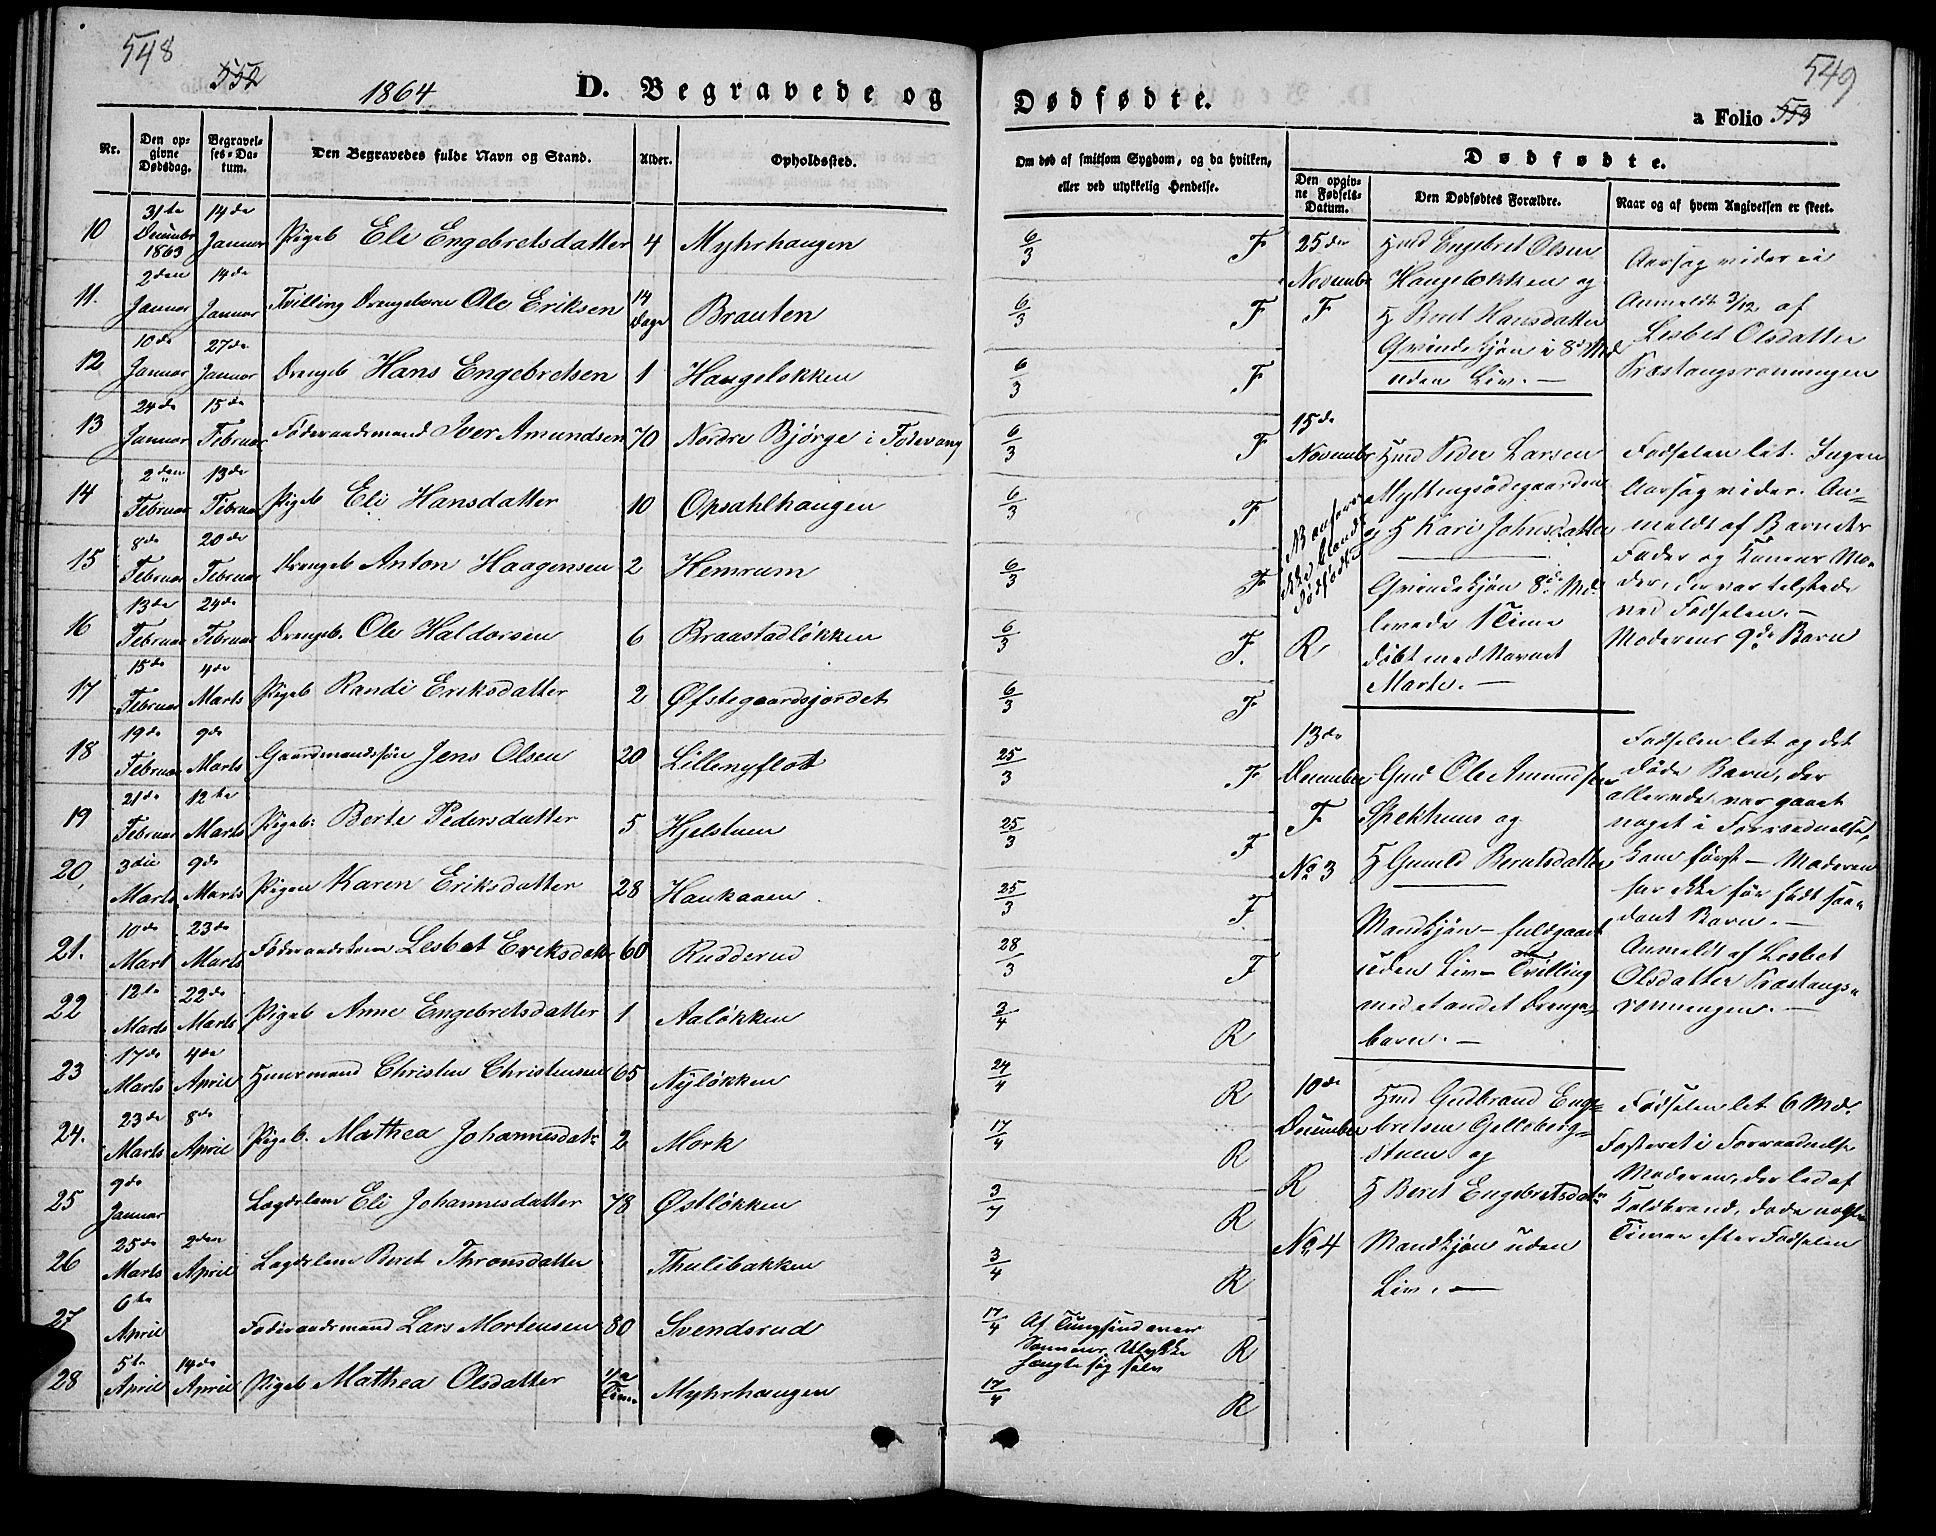 548
552
1864
D. Begravede og
Nr.
Den opgivne Dødsdag.
Begravelses-Datum.
Den Begravedes fulde Navn og Stand.
Alder.
Opholdssted.
10 31te Decembr 1863 14de Januar Pigeb Eli Engebretsdatter 4 Myhrhaugen
11. 2den Januar 14de Januar Tvilling Drengebarn Ole Eriksen 14 Dage Brauten
12 10de Januar 27de Januar Drengeb Hans Engebretsen 1 Haugeløkken
13 24de Januar 15de Februar Føderaadsmand Iver Amundsen 70 Nordre Bjørge i Fodevang
14 2den Februar 13de Februar Pigeb Eli Hansdatter 10 Opsahlhaugen
15 8de Februar 20de Februar Drengeb Anton Haagensen 2 Hemrum
16 13de Februar 24de Februar Drengeb. Ole Haldorsen 6 Braastadløkken
17 15de Februar 4de Marts Pigeb Randi Eriksdatter 2 Øfstegaardsjordet
18 19de Februar 9de Marts Gaardmandssøn Jens Olsen 20 Lillenyflot
19 21de Februar 12te Marts Pigeb: Berte Pedersdatter 5 Hjelstuen
20, 3die Marts 9de Marts Pigen Karen Eriksdatter 28 Haukaaen
21. 10de Mart 23de Marts Føderaadskone Lesbet Eriksdatt 60 Rudderud
22 12te Marts 22de Marts Pigeb Anne Engebretsdatter 1 Aaløkken
23 17de Marts 4de April Huusmand Christen Christensen 65 Nyløkken
24. 23de Marts 8de April Pigeb. Mathea Johannesdatr 2 Mork
25 9de Januar Lægdslem Eli Johannesdatter 78 Østløkken
26 25de Marts 2den April Lægdslem Beret Thronsdatter Thulibakken
27 6te April Føderaadsmand Lars Mortensen 80 Svendsrud
28 5te April 14de April Pigeb Mathea Olsdatter 1/2 Time Myhrhaugen
549
Dødfødte.
a Folio 553
Om død af smitsom Sygdom, og da hvilken,
eller ved ulykkelig Hendelse.
Dødfødte.
Den opgivne Fødsels-Datum.
Den Dødfødtes Forældre.
Naar og af hvem Angivelsen er skeet.
6/3 F
6/3 F
6/3 F
6/3 F
6/3 F
6/3 F
6/3 F.
6/3 F
25/3 F
25/3 F
25/3 F
28/3 F
3/4 R
24/4 R
17/4 R
3/7 R
3/4 R
17/4 Af Tungsind over
Sønnens Ulykke
hængte sig selv R
17/4 R
25de
November
F
Hmd Engebret Olsen
Haugeløkken og
H Beret Hansdatter
Qvindekjøn i 8de Md
uden Liv. —
Aarsag vides ei
Anmeldt 3/12 af
Lesbet Olsdatter
Præstangsrønningen
15de
November
NB anføres
ikke blandt
Dødfødte
R
Hmd Peder Larsen
Myttingsødegaarden
og H Kari Johnsdatter
Qvindekjøn 8de Md.
levede 1 Time
døbt med Navnet
Marte. —
Fødselen let. Ingen
Aarsag vides. An=
meldt af Barnets
Fader og Konens Mo=
der, der var tilstede
ved Fødselen. —
Moderens 9de Barn
13de
December
F
No 3
Gmd Ole Amundsen
Spekhuus og
H Gunild Berntsdatter
Mandkjøn — fuldgaaet
uden Liv — Tvilling
med et andet Drenge=
barn. —
Fødselen let og det
døde Barn, der
allerede var gaaet
noget i Forraadnelse,
kom først — Moderen
har ikke før født saa=
dant Barn. —
Anmeldt af Lesbet
Olsdatter Præstangs=
rønningen. —
10de
December
R
No 4
Hmd Gudbrand Enge=
bretsen Gillebergs=
stuen og
H Beret Engebretsdatr
Mandkjøn uden
Liv. —
Fødselen let 6 Md.
Fosteret i Forraadnelse
Moderen, der led af
Koldbrand, døde nogle
Timer efter Fødselen